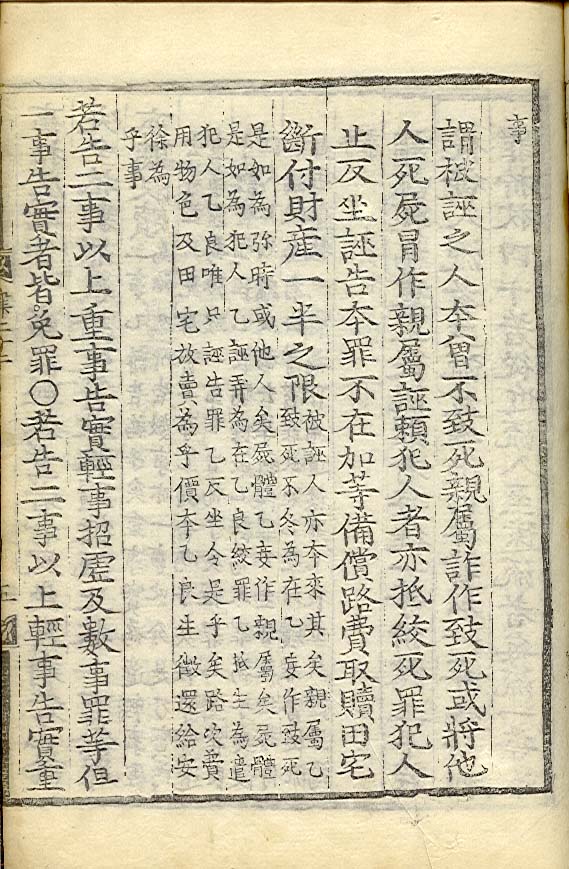 事
謂被誣之人本曾不致死親屬詐作致死或將他
人死屍冒作親屬誣賴犯人者亦抵絞死罪犯人
止反坐誣告本罪不在加等備償路費取贖田宅
斷付財産一半之限被誣人亦本來其矣親屬乙
致死不冬為在乙妄作致死
是如為弥時或他人矣屍體乙妄作親屬矣屍體
是如為犯人乙誣弄為在乙良絞罪乙抵生為遣
犯人乙良唯只誣告罪乙反坐令是乎矣路次賚
用物色及田宅放賣為乎價本乙良生徵還給安
徐為
乎事
若告二事以上重事告實輕事招虛及數事罪等但
一事告實者皆免罪○若告二事以上輕事告實重